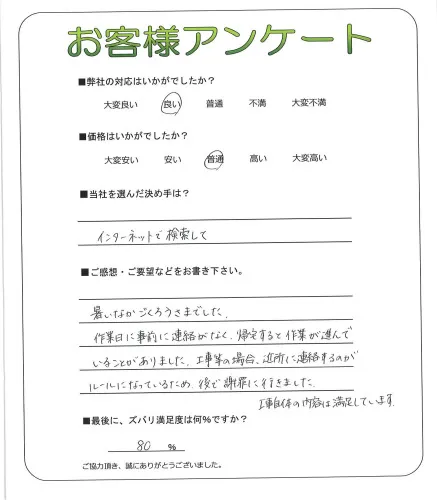 お客様アンケート
■弊社の対応はいかがでしたか？
大変良い 良い 普通 不満 大変不満
■価格はいかがでしたか？
大変安い 安い 普通 高い 大変高い
■当社を選んだ決め手は？
インターネットで検索して
■ご感想・ご要望などをお書き下さい。
暑いなかごくろうさまでした。
作業日に事前に連絡がなく、帰宅すると作業が進んで
いることがありました。工事等の場合、近所に連絡するのが
ルールになっているため、後で謝罪に行きました。
工事自体の内容は満足しています。
■最後に、ズバリ満足度は何%ですか？
80 %
ご協力頂き、誠にありがとうございました。